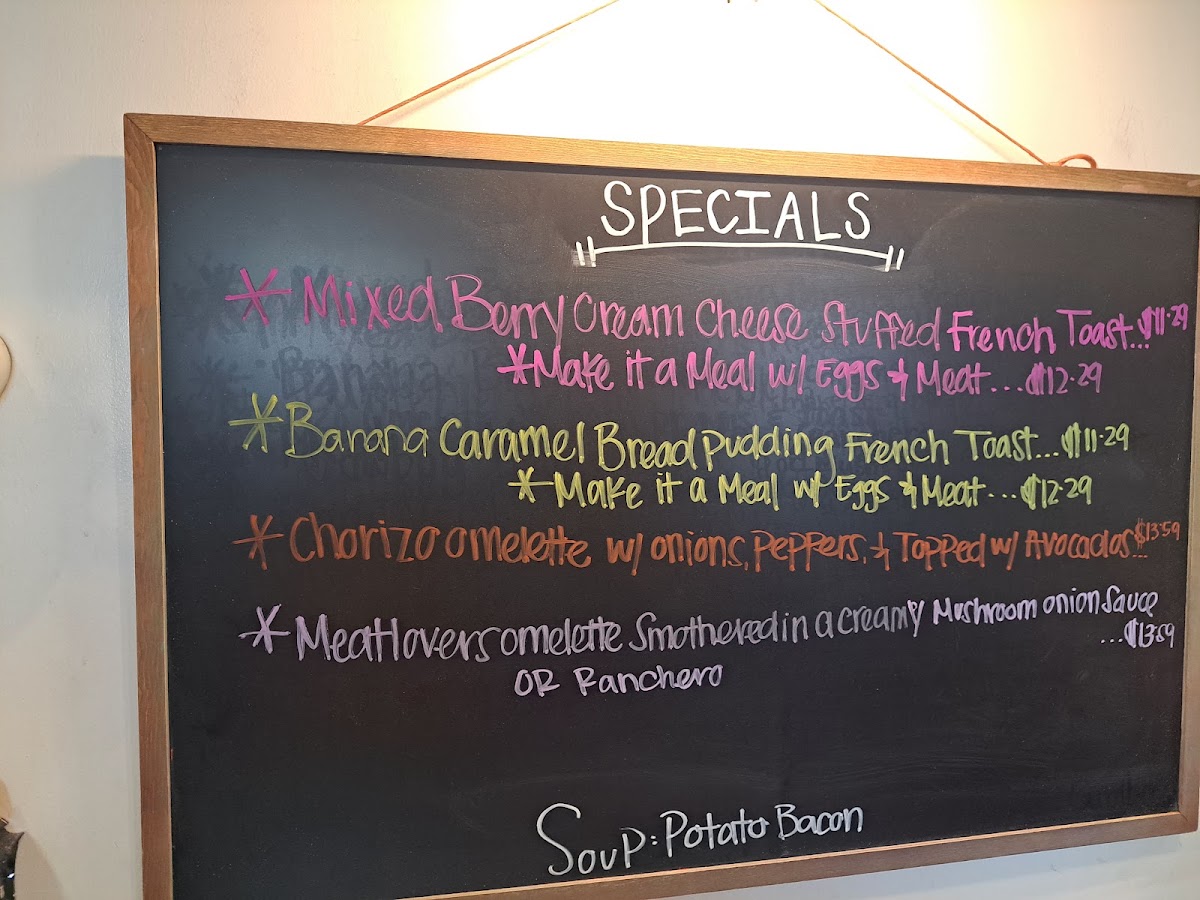 SPECIALS
* Mixed Berry Cream Cheese Stuffed French Toast...$11.29
*Make it a Meal w/ Eggs & Meat...$12.29
* Banana Caramel Bread Pudding French Toast...$11.29
*Make it a Meal w/ Eggs & Meat...$12.29
* Chorizo omelette w/ onions, Peppers, & Topped w/ Avocados...$13.59
* Meatlovers omelette Smothered in a creamy Mushroom onion Sauce
...$13.59
OR Ranchero
Soup: Potato Bacon